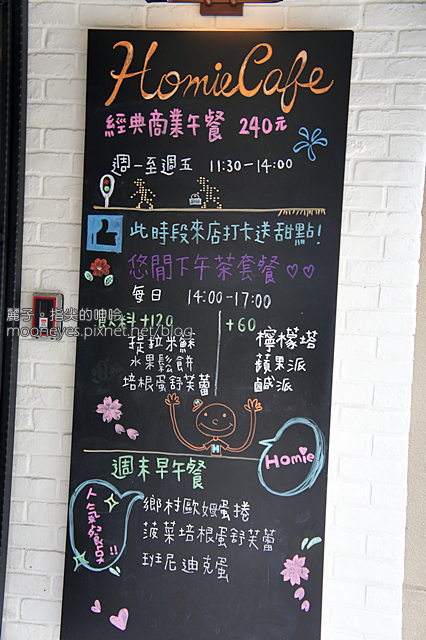 HomieCafe
經典商業午餐 240元
週一至週五 11:30-14:00
此時段來店打卡送甜點!
悠閒下午茶套餐♡♡
每日 14:00-17:00
飲料+120
+60
提拉米穌
水果鬆餅
培根蛋舒芙蕾
檸檬塔
蘋果派
鹹派
麗子。指尖的呻吟
mooneyes.pixnet.net/blog
H
週末早午餐
Homie
人氣餐點!!
鄉村歐姆蛋捲
菠菜培根蛋舒芙蕾
班尼迪克蛋